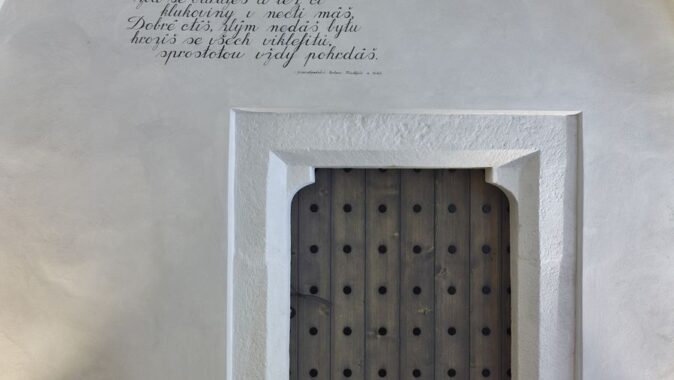 klukoviny v nečti máš,
Dobré ctíš, zlým nedáš bytu
hrozíš se všech viklefitů,
sprostotou vždy pohrdáš.